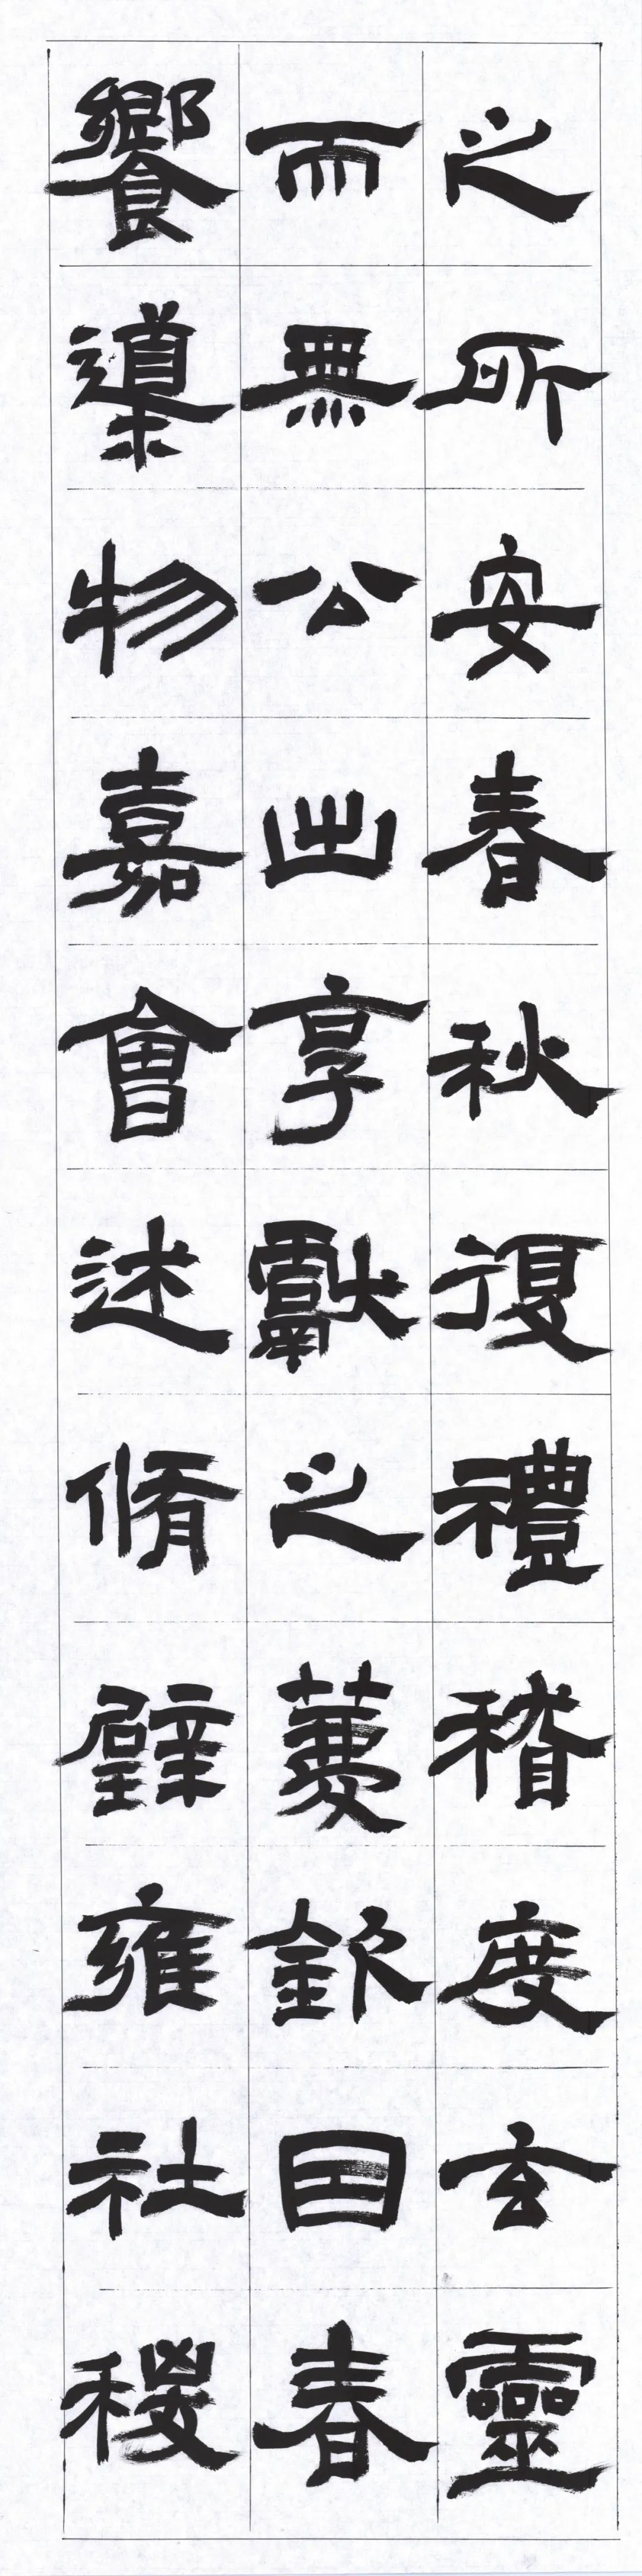 之所安春秋復禮稽度玄靈
而無公出享獻之薦欽因春
饗導物嘉會述脩璧雍社稷